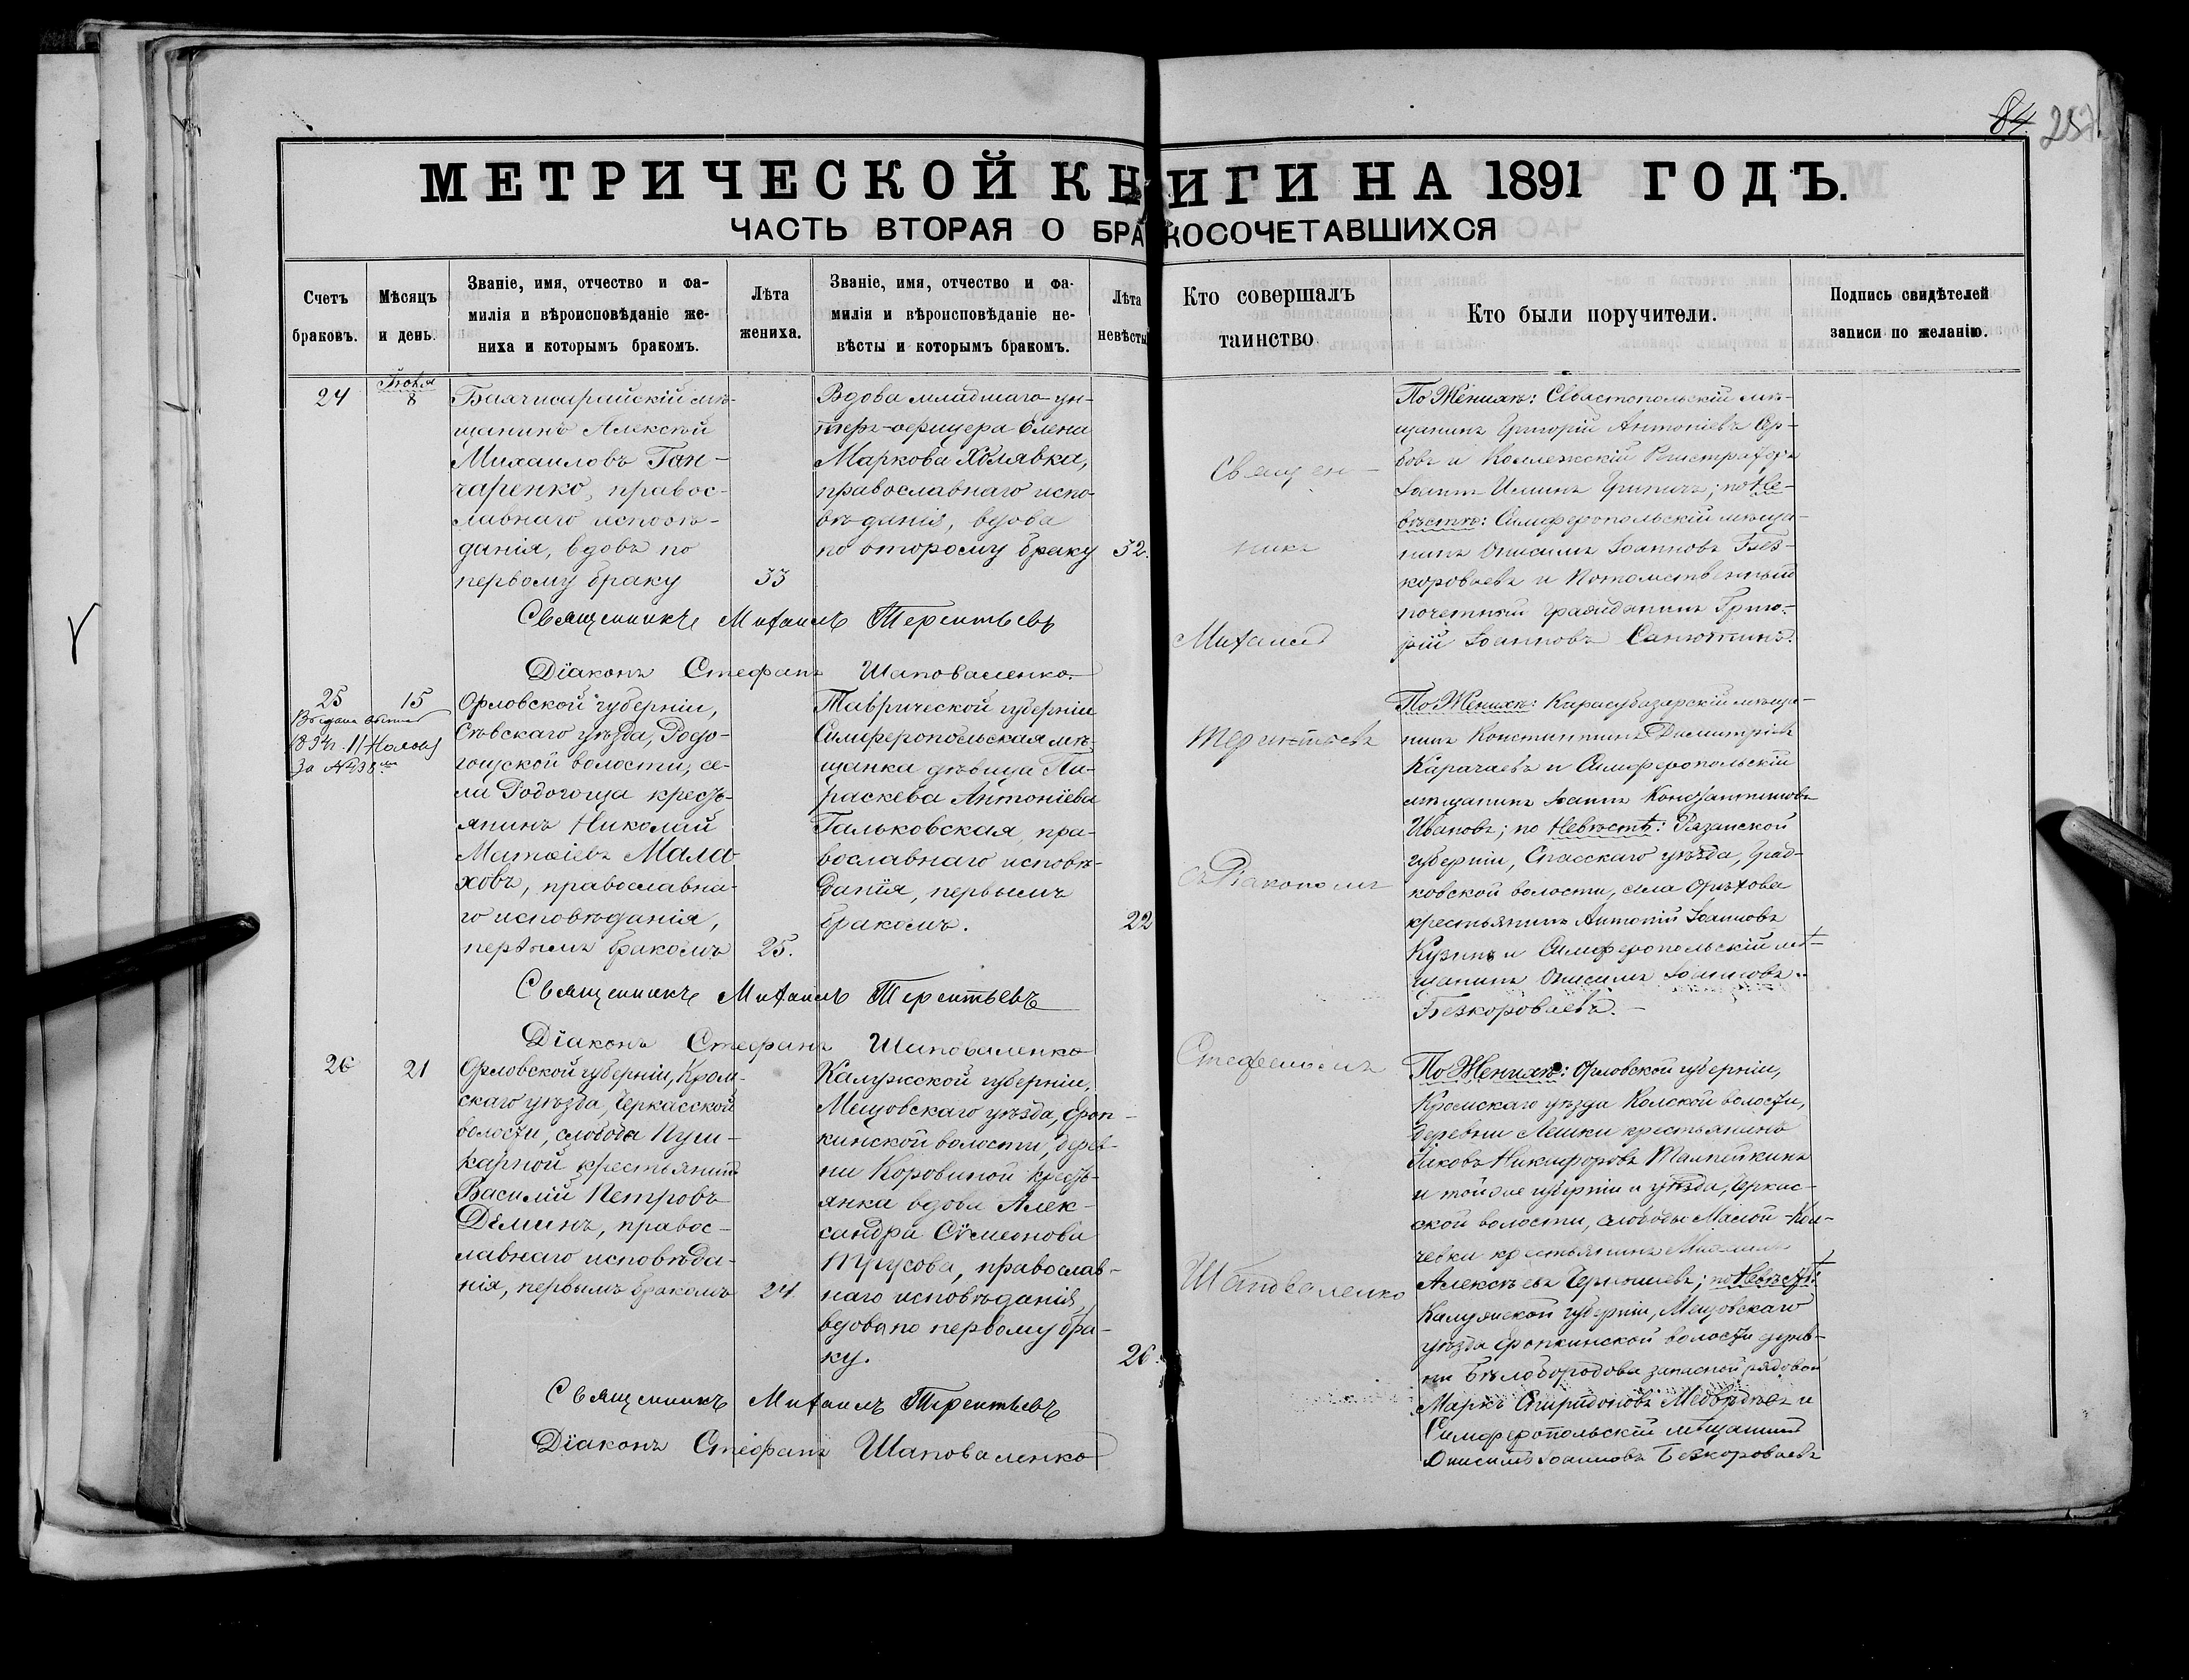 84 257
МЕТРИЧЕСКОЙ КНИГИ НА 1891 ГОДЪ.
ЧАСТЬ ВТОРАЯ О БРАКОСОЧЕТАВШИХСЯ
Счетъ браковъ.
Мѣсяцъ и день.
Званіе, имя, отчество и фа-
милія и вѣроисповѣданіе же-
ниха и которымъ бракомъ.
Лѣта
жениха.
Званіе, имя, отчество и фа-
милія и вѣроисповѣданіе не-
вѣсты и которымъ бракомъ.
Лѣта
невѣсты
Кто совершалъ
таинство
Кто были поручители.
Подпись свидѣтелей
записи по желанію.
24
8
Бахчисарайскій мѣ-
щанинъ Алексѣй
Михаиловъ Ган-
чаренко, правос-
лавнаго исповѣ-
данія, вдовъ по
первому браку
33
Вдова младшаго ун-
теръ-офицера Елена
Маркова Холявка,
православнаго испо-
вѣданія, вдова
по второму браку
32.
Священ-
никъ
Михаилъ
Терентьевъ
съ Діакономъ
Стефаномъ
Шаповаленко
По Женихѣ: Севастопольскій мѣ-
щанинъ Григорій Антоніевъ Сер-
бовъ и Коллежскій Регистраторъ
Іоаннъ Илшинъ; по Не-
вѣстѣ: Симферопольскій мѣща-
нинъ Онисимъ Іоанновъ Без-
короваевъ и Потомственный
почетный гражданинъ Григо-
рій Іоанновъ Санютинъ.
Священникъ Михаилъ Терентьевъ
Діаконъ Стефанъ Шаповаленко.
25
15
1894г. 11 Ноября
За № 438
Орловской губерніи,
Сѣвскаго уѣзда, Родо-
гощской волости, се-
ла Родогоща кресть-
янинъ Николай
Матѳіевъ Мала-
ховъ, православна-
го исповѣданія,
первымъ бракомъ
25.
Таврической губерніи
Симферопольская мѣ-
щанка дѣвица Па-
раскева Антоніева
Гальковская, пра-
вославнаго исповѣ-
данія, первымъ
бракомъ.
22
По Женихѣ: Карасубазарскій мѣща-
нинъ Константинъ Димитріевъ
Карачаевъ и Симферопольскій
мѣщанинъ Іоаннъ Константиновъ
Ивановъ; по Невѣстѣ: Рязанской
губерніи, Спасскаго уѣзда, Град-
ковской волости, села Орѣхова
крестьянинъ Антоній Іоанновъ
Кузинъ и Симферопольскій мѣ-
щанинъ Онисимъ Іоанновъ
Безкороваевъ.
Священникъ Михаилъ Терентьевъ
Діаконъ Стефанъ Шаповаленко
26
21
Орловской губерніи, Кром-
скаго уѣзда, Черкасской
волости, слободы Пуш-
карной крестьянинъ
Василій Петровъ
Дёминъ, правос-
лавнаго исповѣда-
нія, первымъ бракомъ
24
Калужской губерніи,
Мещовскаго уѣзда, Фроп-
кинской волости, дерев-
ни Коровиной кресть-
янка вдова Алек-
сандра Сѵмеонова
Трусова, православ-
наго исповѣданія,
вдова по первому бра-
ку.
26.
По Женихѣ: Орловской губерніи,
Кромскаго уѣзда Колской волости,
деревни Лешки крестьянинъ
Іаковъ Никифоровъ
и той же губерніи и уѣзда, Черкас-
ской волости, слободы Малой-Ко-
чевки крестьянинъ Михаилъ
Алексѣевъ Чернышевъ; по Невѣстѣ:
Калужской губерніи, Мещовскаго
уѣзда Фропкинской волости дерев-
ни Бѣлобородова запасной рядовой
Маркъ Спиридоновъ Медвѣдевъ и
Симферопольскій мѣщанинъ
Онисимъ Іоанновъ Безкороваевъ
Священникъ Михаилъ Терентьевъ
Діаконъ Стефанъ Шаповаленко